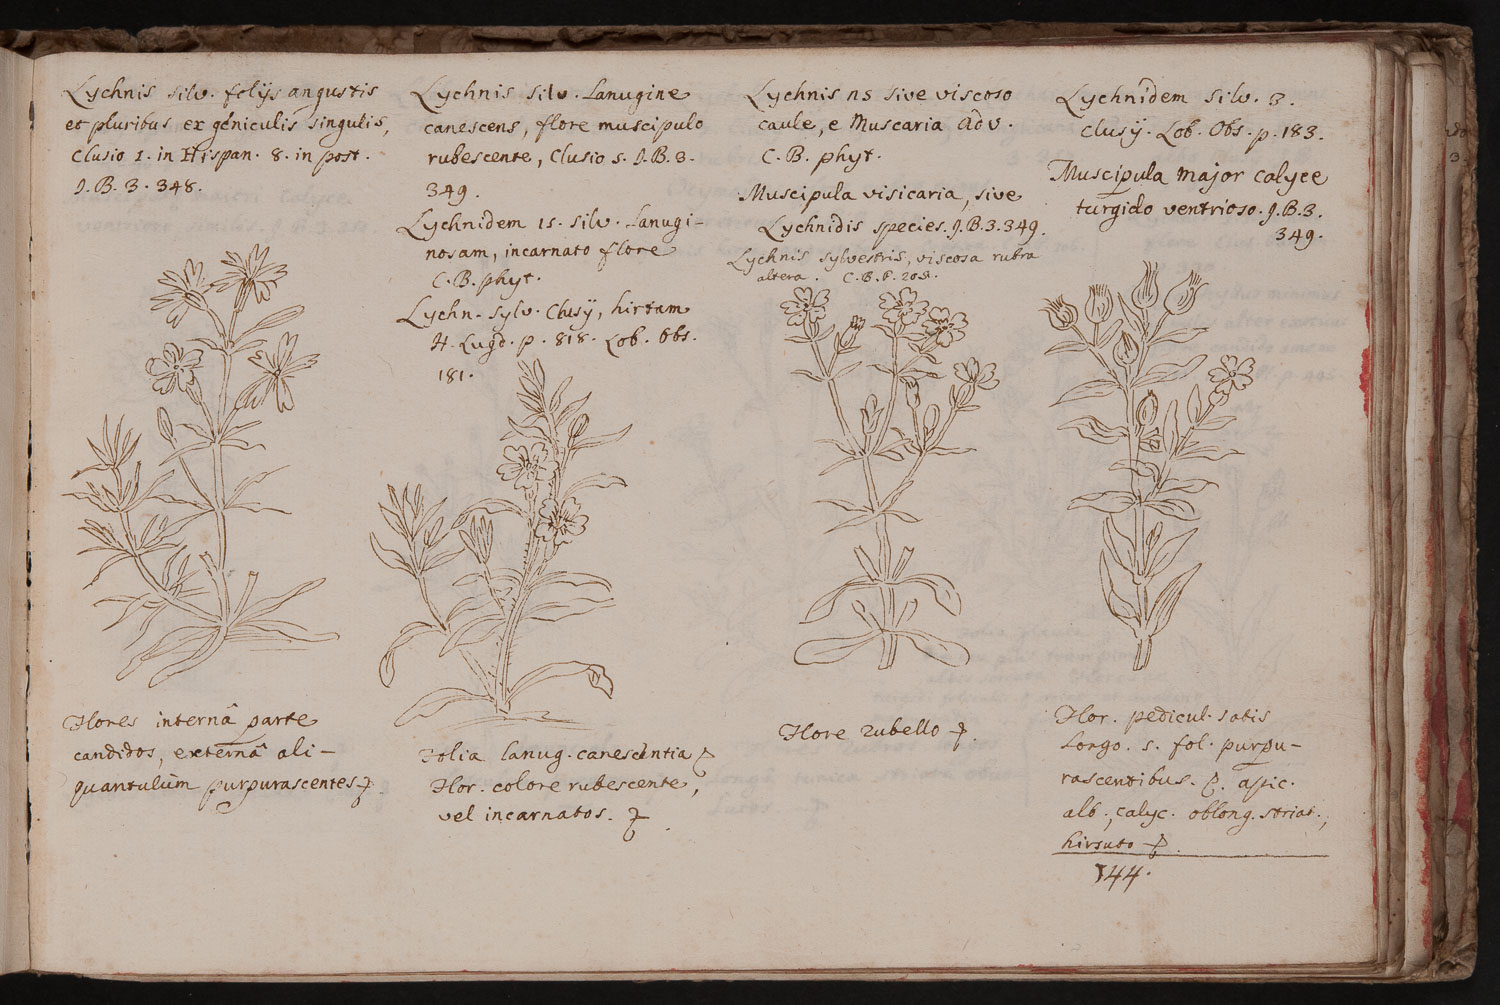 Lychnis silv. folijs angustis
et pluribus ex geniculis singulis,
Clusio 1. in Hispan. 8. in post.
J. B. 3. 348.
Flores internâ parte
candidos, externâ ali-
quantulùm purpurascentes
Lychnis silv. Lanugine
canescens, flore muscipulo
rubescente, Clusio s. J. B. 3.
349.
Lychnidem 15. silv. Lanugi-
nosam, incarnato flore
C. B. phyt.
Lychn. sylv. Clusÿ, hirtam
H. Lugd. p. 818. Lob. Obs.
181.
Folia lanug. canescentia
Flor. colore rubescente,
vel incarnatos.
Lychnis ns sive viscoso
caule, e Muscaria Adv.
C. B. phyt.
Muscipula visicaria, sive
Lychnidis species. J. B. 3. 349.
Lychnis sylvestris, viscosa rubra
altera. C. B. P. 205.
Flore rubello
Lychnidem silv. 3.
Clusÿ. Lob. Obs. p. 183.
Muscipula major calyce
turgido ventrioso. J. B. 3.
349.
Flor. pedicul. satis
Longo. s. fol. purpu-
rascentibus. apic.
alb., calyc. oblong. striat.,
hirsuto
144.